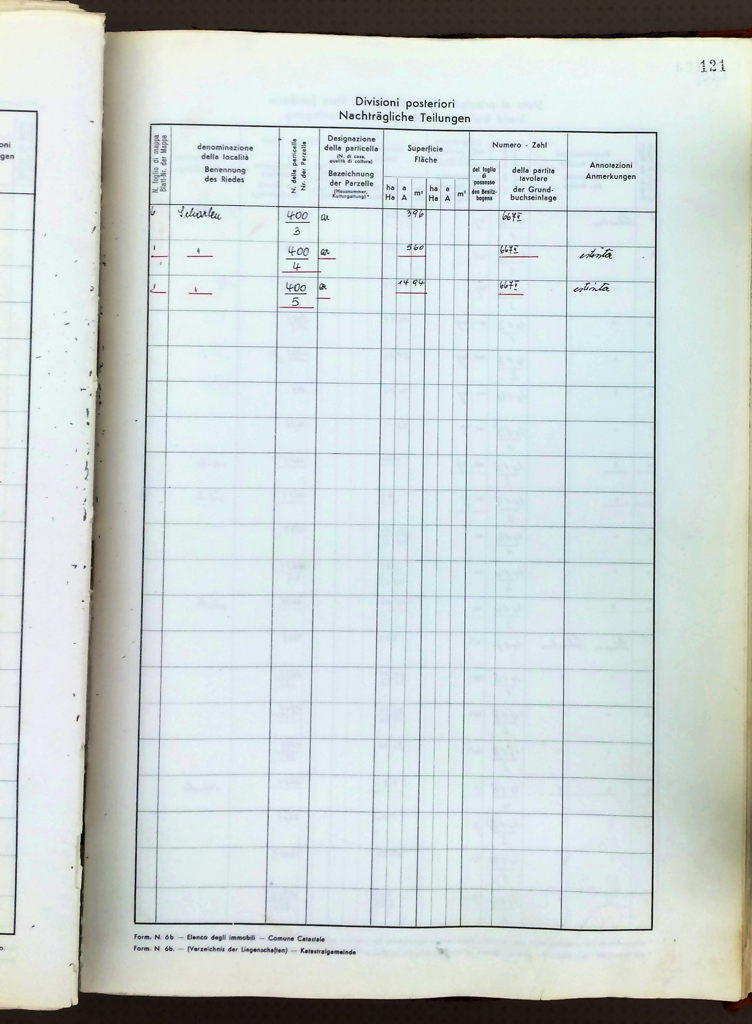 121
Divisioni posteriori
Nachträgliche Teilungen
N. foglio di mappa
Blatt-Nr. der Mappe
denominazione
della località
Benennung
des Riedes
N. della particella
Nr. der Parzelle
Designazione
della particella
(N. di casa,
qualità di coltura)
Bezeichnung
der Parzelle
(Hausnummer,
Kulturgattung)
Superficie
Fläche
ha a m² ha a m²
Ha A Ha A
Numero - Zahl
del foglio
di
possesso
des Besitz-
bogens
della partita
tavolare
der Grund-
buchseinlage
Annotazioni
Anmerkungen
6 400 396 667 II
3
400 560 667 II estinta
4
400 14 94 667 II estinta
5
Form. N. 6b — Elenco degli immobili — Comune Catastale
Form. N. 6b. — (Verzeichnis der Liegenschaften) — Katastralgemeinde